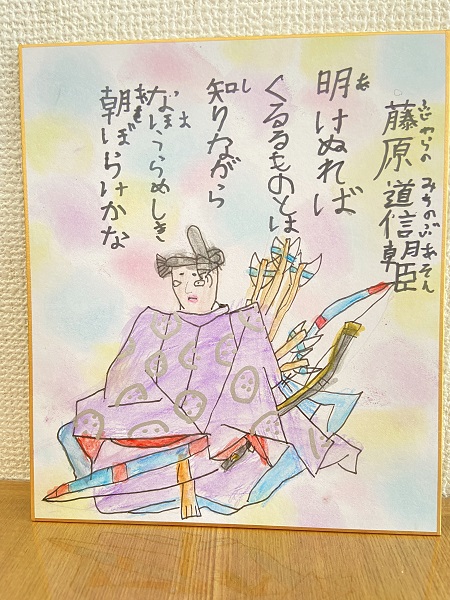 ふじわらの みちのぶあそん
藤原 道信朝臣
あ
明けぬれば
くるるものとは
し
知りながら
お
なほうらめしき
朝ぼらけかな